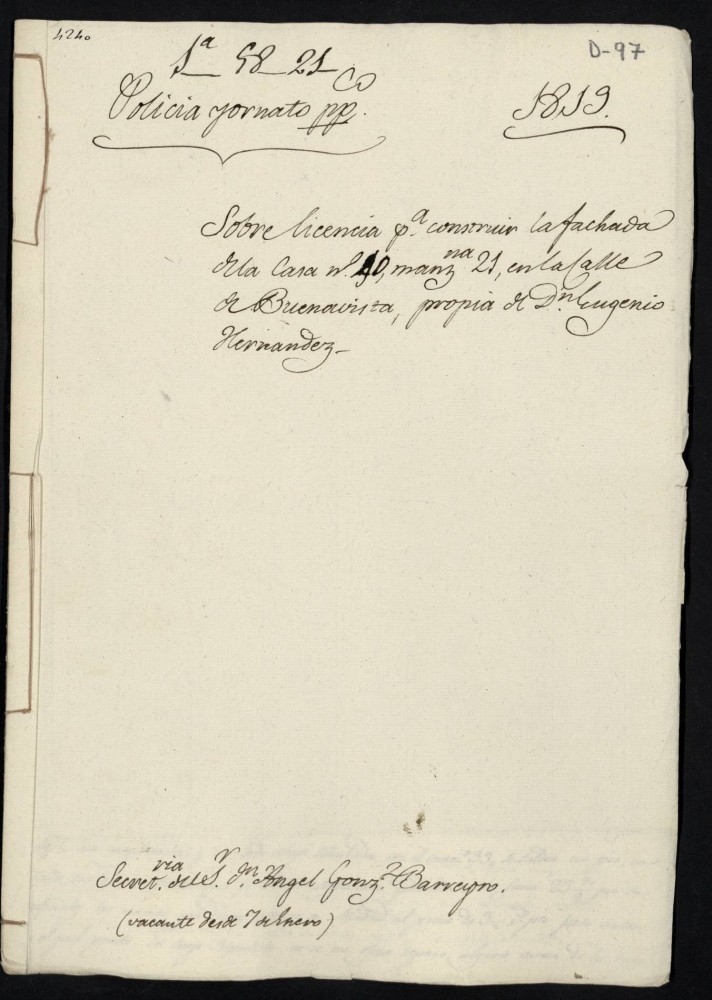 4240
D-97
1ª 58-21
Policia y ornato pp.co
1819.
Sobre licencia p.a construir la fachada
dela Casa n.º 10, manz.na 21, en la Calle
de Buenavista, propia de D.n Eugenio
Hernandez-
Secret.via del S.r d.n Angel Gonz.z Barreyro.
(vacante desde 7 de Enero)